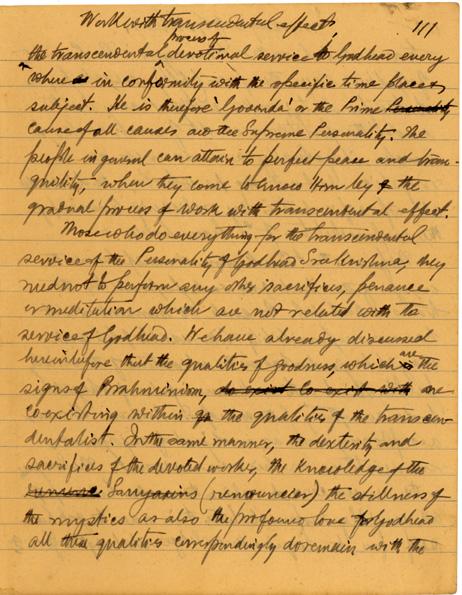 Work with transcendental effect
111
process of
the transcendental devotional service to Godhead every
where in conformity with the specific time place &
subject. He is therefore 'Govinda' or the Prime Personality
cause of all causes and the Supreme Personality. The
people in general can attain to perfect peace and tran-
quility, when they come to know Him by the
gradual process of work with transcendental effect.
Those who do everything for the transcendental
service of the Personality of Godhead Sreekrishna, they
need not to perform any other sacrifices, penance
or meditation which are not related with the
service of Godhead. We have already discussed
hereinbefore that the qualities of goodness, which are the
signs of Brahminism, do exist co-exist with are
co-existing within the qualities of the transcen-
dentalist. In the same manner, the dexterity and
sacrifices of the devoted worker, the knowledge of the
Sanyasins (renouncier) the stillness of
the mystics as also the profound love for Godhead
all these qualities correspondingly do remain with the